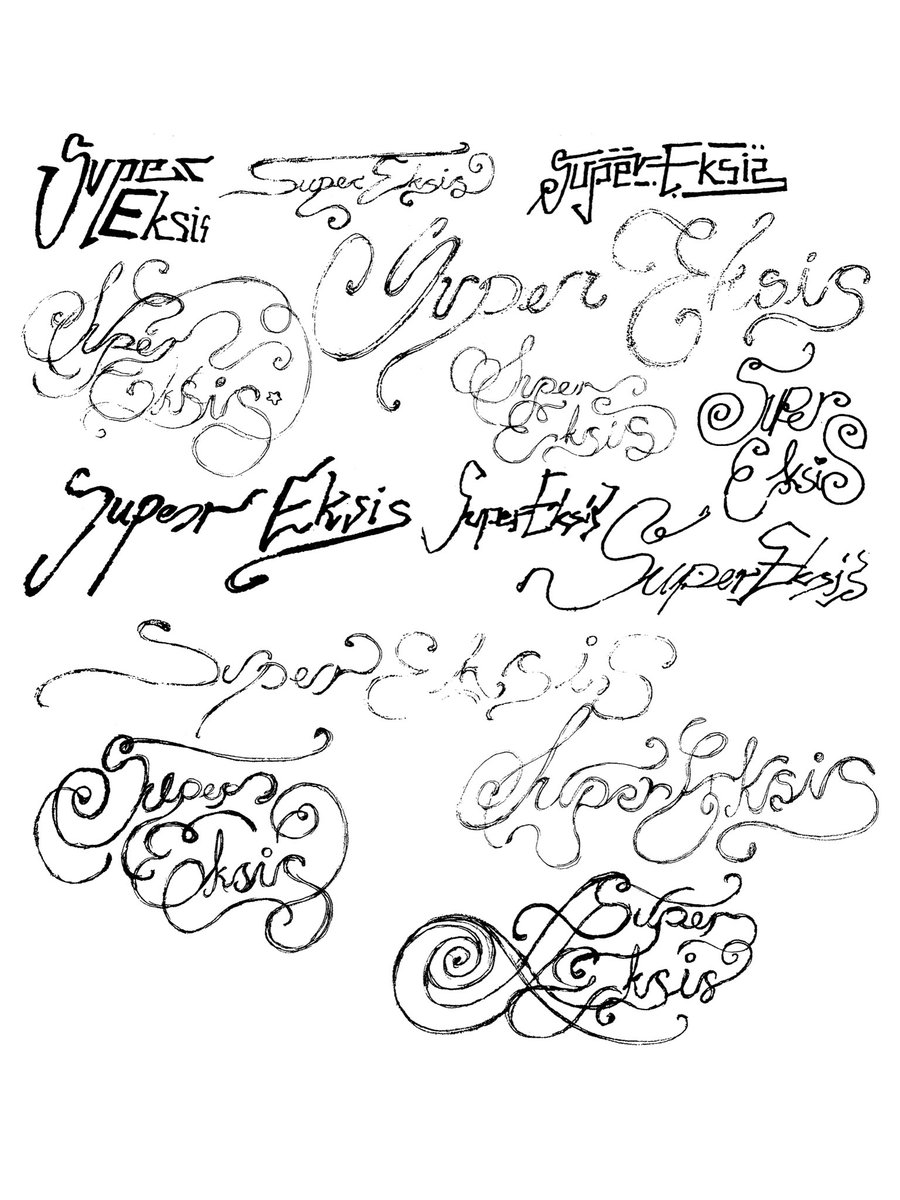 Super
Eksis
Super Eksis
Super Eksis
Super Eksis
Super
Eksis
Super
Eksis
Super
Eksis
Super Eksis
Super Eksis
Super Eksis
Super Eksis
Super
Eksis
Super Eksis
Super
Eksis